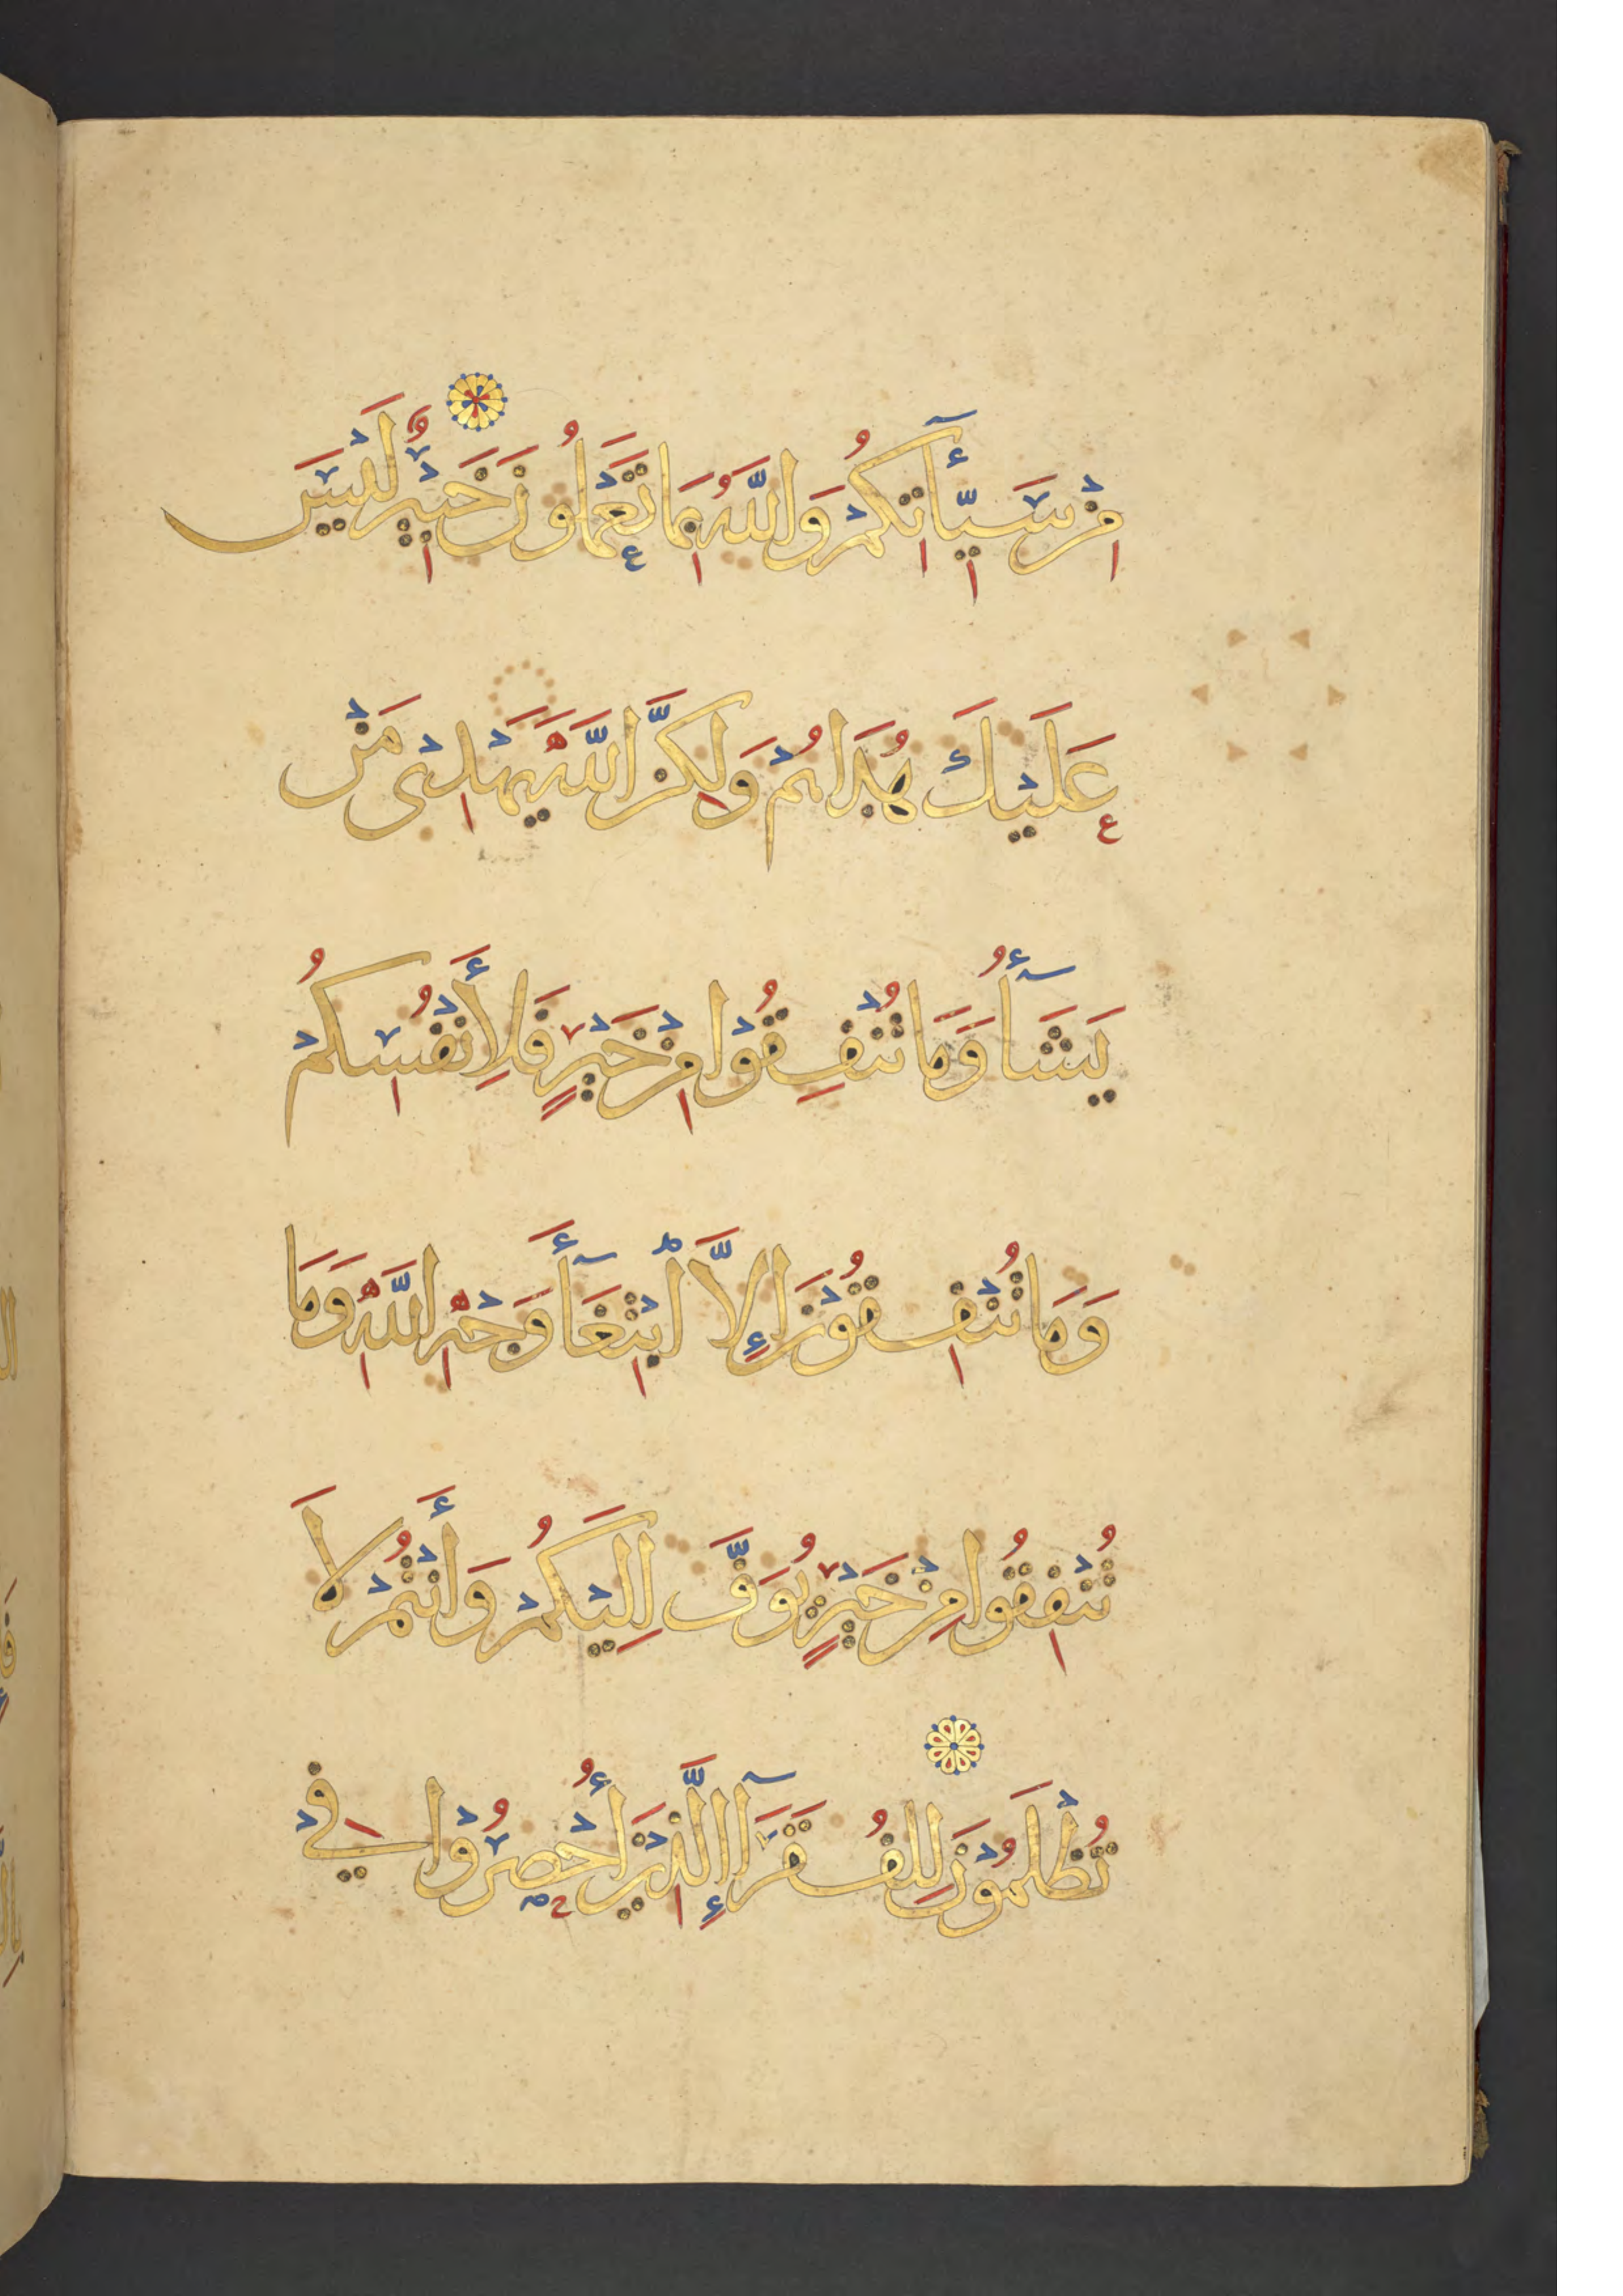 مِنْ سَيِّأٓتِكُمْ وَاللَّهُ بِمَا تَعْمَلُونَ خَبِيرٌ لَيْسَ
عَلَيْكَ هُدَاهُمْ وَلَكِنَّ اللَّهَ يَهْدِى مَنْ
يَشَآءُ وَمَا تُنْفِقُوْا مِنْ خَيْرٍ فَلِأَنْفُسِكُمْ
وَمَا تُنْفِقُوْنَ إِلاَّ ابْتِغَآءَ وَجْهِ اللَّهِ وَمَا
تُنْفِقُوا مِنْ خَيْرٍ يُوَفَّ إِلَيْكُمْ وَأَنْتُمْ لاَ
تُظْلَمُوْنَ لِلْفُقَرَآءِ الَّذِيْنَ أُحْصِرُوْا فِي